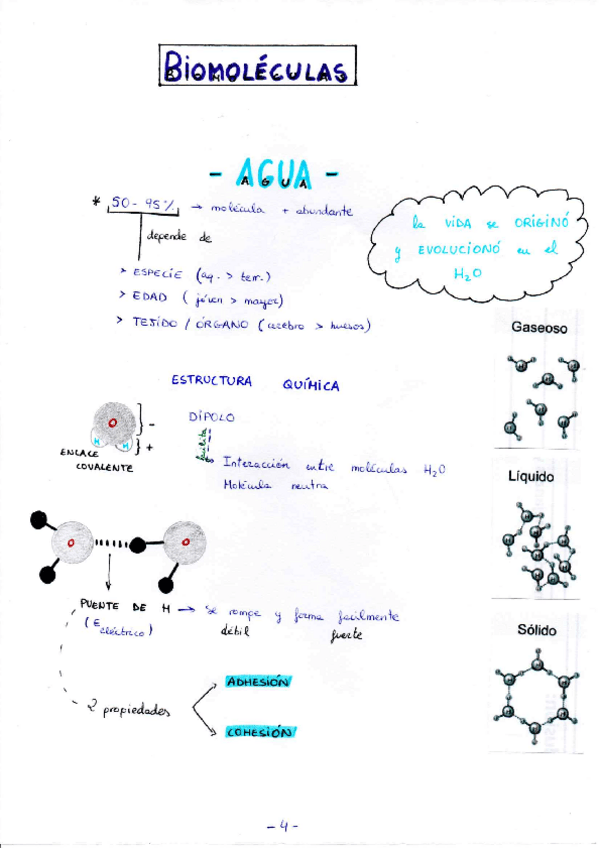 BiOMOLÉCULAS
- AGUA -
* 50-95% → molécula + abundante
depende de
> ESPECIE (aq. > terr.)
> EDAD (jóven > mayor)
> TEJIDO / ÓRGANO (cerebro > huesos)
la ViDA se ORIGINÓ
y EVOLUCIONÓ en el
H₂O
ESTRUCTURA QUÍMICA
O
H H
-
+
ENLACE
COVALENTE
DIPOLO
facilita
Interacción entre moléculas H₂O
Molécula neutra
O O
PUENTE DE H → se rompe y forma facilmente
(E eléctrico) débil fuerte
2 propiedades
ADHESIÓN
COHESIÓN
Gaseoso
Líquido
Sólido
- 4 -